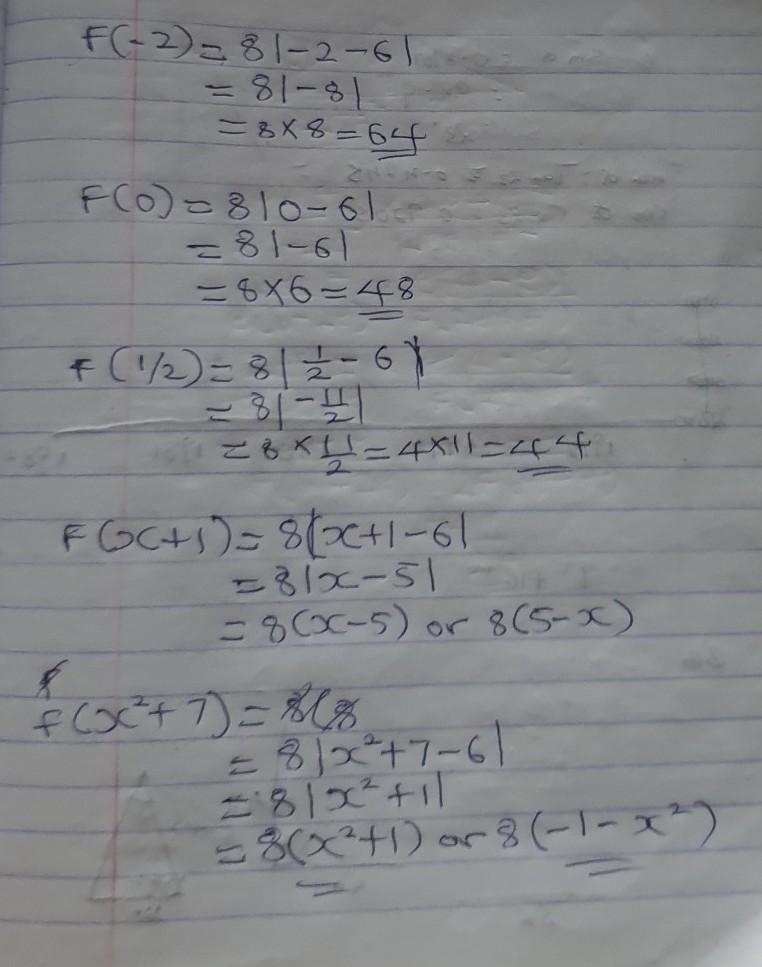 F(-2) = 8|-2-6|
= 8|-8|
= 8×8 = 64
F(0) = 8|0-6|
= 8|-6|
= 8×6 = 48
F(1/2) = 8|1/2 - 6|
= 8|-11/2|
= 8 × 11/2 = 4×11 = 44
F(x+1) = 8|x+1-6|
= 8|x-5|
= 8(x-5) or 8(5-x)
f(x²+7) =
= 8|x²+7-6|
= 8|x²+1|
= 8(x²+1) or 8(-1-x²)